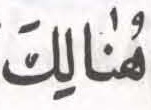 هُنٰالِكَ